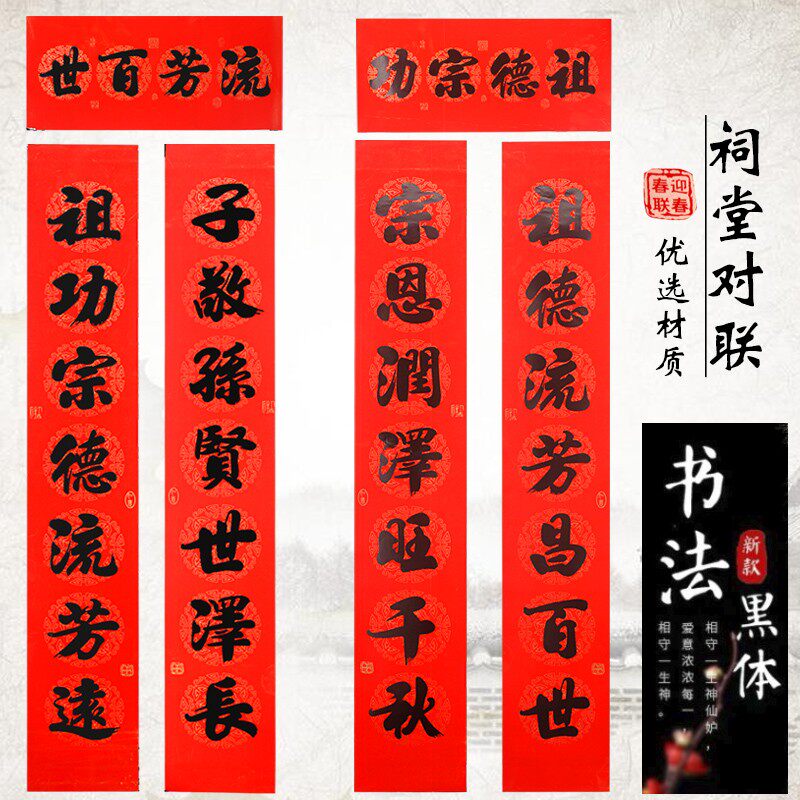 流芳百世
祖功宗德流芳遠
子敬孫賢世澤長
祖德宗功
祖德流芳昌百世
宗恩潤澤旺千秋
祠堂对联
迎春
春联
优选材质
书法
新款
黑体
相守一生神仙妒，
爱意浓浓每一，
相守一生神。